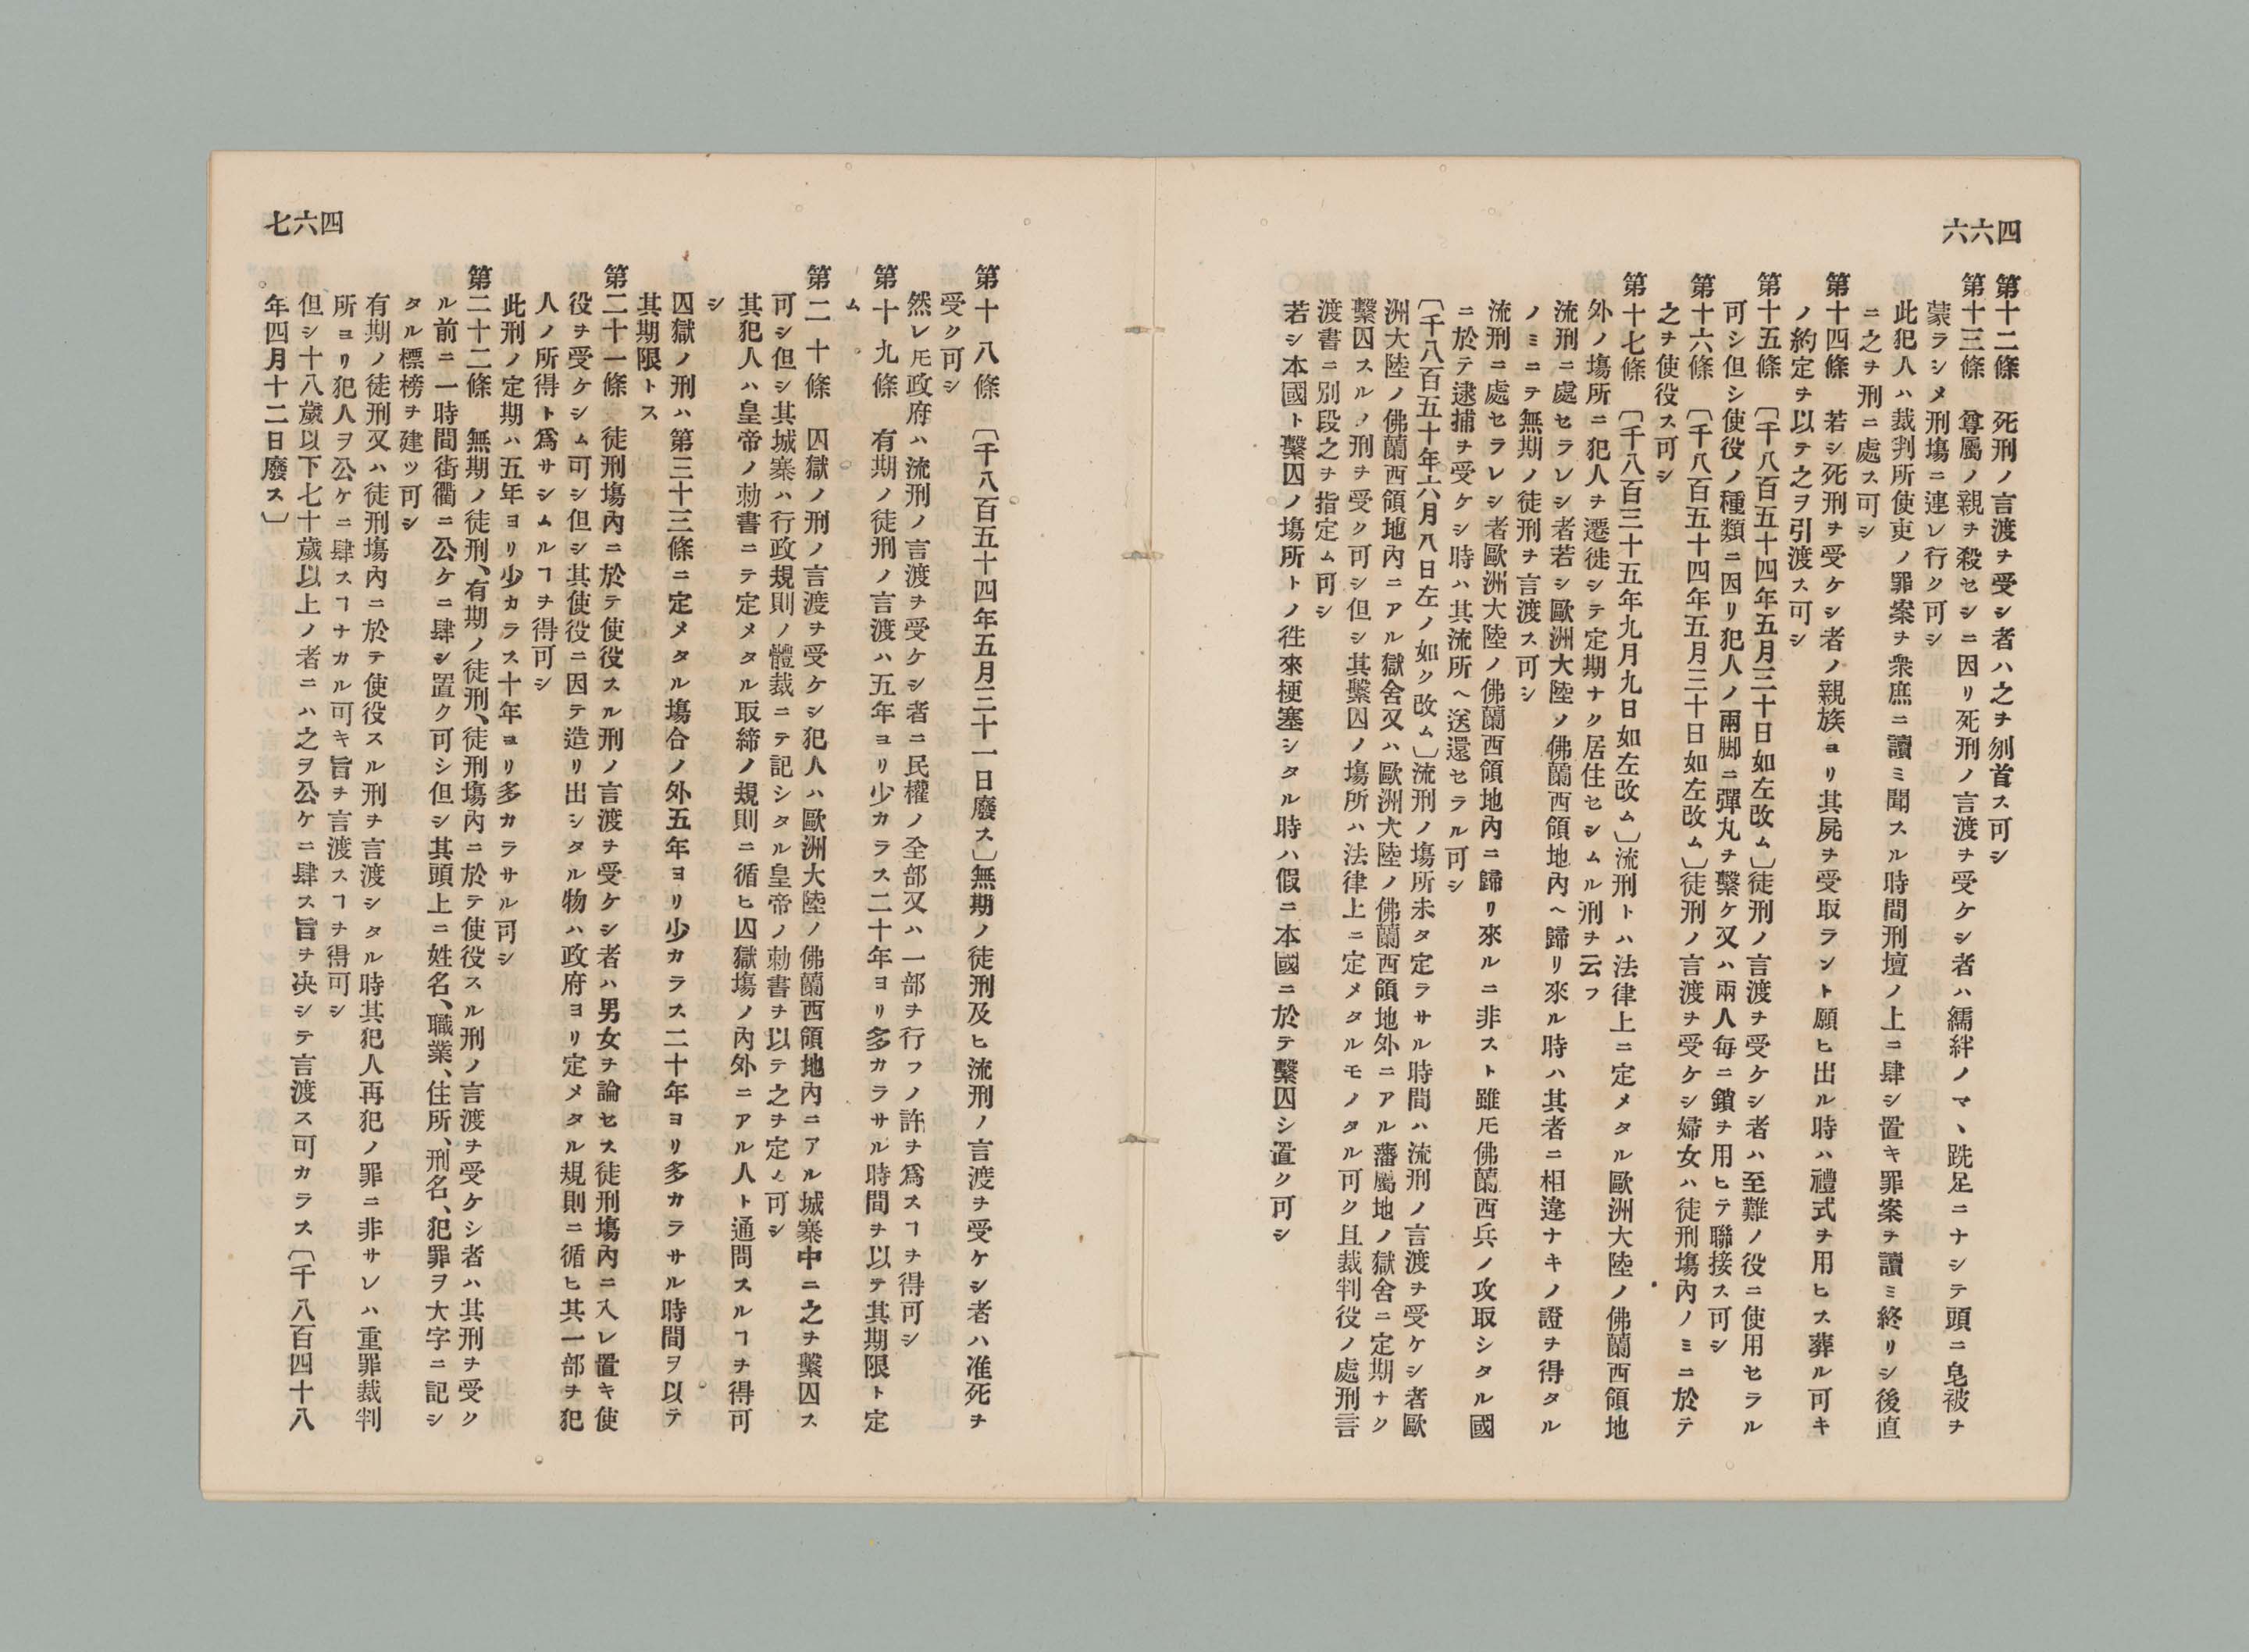 四六六
第十二條　死刑ノ言渡ヲ受シ者ハ之ヲ刎首ス可シ
第十三條　尊屬ノ親ヲ殺セシニ因リ死刑ノ言渡ヲ受ケシ者ハ繻絆ノマヽ跣足ニナシテ頭ニ皂被ヲ
蒙ラシメ刑塲ニ連レ行ク可シ
此犯人ハ裁判所使吏ノ罪案ヲ衆庶ニ讀ミ聞スル時間刑壇ノ上ニ肆シ置キ罪案ヲ讀ミ終リシ後直
ニ之ヲ刑ニ處ス可シ
第十四條　若シ死刑ヲ受ケシ者ノ親族ヨリ其屍ヲ受取ラント願ヒ出ル時ハ禮式ヲ用ヒス葬ル可キ
ノ約定ヲ以テ之ヲ引渡ス可シ
第十五條　〔千八百五十四年五月三十日如左改ム〕徒刑ノ言渡ヲ受ケシ者ハ至難ノ役ニ使用セラル
可シ但シ使役ノ種類ニ因リ犯人ノ兩脚ニ彈丸ヲ繫ケ又ハ兩人每ニ鎖ヲ用ヒテ聯接ス可シ
第十六條　〔千八百五十四年五月三十日如左改ム〕徒刑ノ言渡ヲ受ケシ婦女ハ徒刑塲內ノミニ於テ
之ヲ使役ス可シ
第十七條　〔千八百三十五年九月九日如左改ム〕流刑トハ法律上ニ定メタル歐洲大陸ノ佛蘭西領地
外ノ塲所ニ犯人ヲ遷徙シテ定期ナク居住セシムル刑ヲ云フ
流刑ニ處セラレシ者若シ歐洲大陸ノ佛蘭西領地內ヘ歸リ來ル時ハ其者ニ相違ナキノ證ヲ得タル
ノミニテ無期ノ徒刑ヲ言渡ス可シ
流刑ニ處セラレシ者歐洲大陸ノ佛蘭西領地內ニ歸リ來ルニ非スト雖𪜈佛蘭西兵ノ攻取シタル國
ニ於テ逮捕ヲ受ケシ時ハ其流所ヘ送還セラル可シ
〔千八百五十年六月八日左ノ如ク改ム〕流刑ノ塲所未タ定ラサル時間ハ流刑ノ言渡ヲ受ケシ者歐
洲大陸ノ佛蘭西領地內ニアル獄舍又ハ歐洲大陸ノ佛蘭西領地外ニアル藩屬地ノ獄舍ニ定期ナク
繫囚スルノ刑ヲ受ク可シ但シ其繫囚ノ塲所ハ法律上ニ定メタルモノタル可ク且裁判役ノ處刑言
渡書ニ別段之ヲ指定ム可シ
若シ本國ト繫囚ノ塲所トノ徃來梗塞シタル時ハ假ニ本國ニ於テ繫囚シ置ク可シ
四六七
第十八條　〔千八百五十四年五月三十一日廢ス〕無期ノ徒刑及ヒ流刑ノ言渡ヲ受ケシ者ハ准死ヲ
受ク可シ
然レ𪜈政府ハ流刑ノ言渡ヲ受ケシ者ニ民權ノ全部又ハ一部ヲ行フノ許ヲ爲スヿヲ得可シ
第十九條　有期ノ徒刑ノ言渡ハ五年ヨリ少カラス二十年ヨリ多カラサル時間ヲ以テ其期限ト定
ム
第二十條　囚獄ノ刑ノ言渡ヲ受ケシ犯人ハ歐洲大陸ノ佛蘭西領地內ニアル城寨中ニ之ヲ繫囚ス
可シ但シ其城寨ハ行政規則ノ體裁ニテ記シタル皇帝ノ勅書ヲ以テ之ヲ定ム可シ
其犯人ハ皇帝ノ勅書ニテ定メタル取締ノ規則ニ循ヒ囚獄塲ノ內外ニアル人ト通問スルヿヲ得可
シ
囚獄ノ刑ハ第三十三條ニ定メタル塲合ノ外五年ヨリ少カラス二十年ヨリ多カラサル時間ヲ以テ
其期限トス
第二十一條　徒刑塲內ニ於テ使役スル刑ノ言渡ヲ受ケシ者ハ男女ヲ論セス徒刑塲內ニ入レ置キ使
役ヲ受ケシム可シ但シ其使役ニ因テ造リ出シタル物ハ政府ヨリ定メタル規則ニ循ヒ其一部ヲ犯
人ノ所得ト爲サシムルヿヲ得可シ
此刑ノ定期ハ五年ヨリ少カラス十年ヨリ多カラサル可シ
第二十二條　無期ノ徒刑、有期ノ徒刑、徒刑塲內ニ於テ使役スル刑ノ言渡ヲ受ケシ者ハ其刑ヲ受ク
ル前ニ一時間街衢ニ公ケニ肆シ置ク可シ但シ其頭上ニ姓名、職業、住所、刑名、犯罪ヲ大字ニ記シ
タル標榜ヲ建ツ可シ
有期ノ徒刑又ハ徒刑塲內ニ於テ使役スル刑ヲ言渡シタル時其犯人再犯ノ罪ニ非サレハ重罪裁判
所ヨリ犯人ヲ公ケニ肆スヿナカル可キ旨ヲ言渡スヿヲ得可シ
但シ十八歲以下七十歲以上ノ者ニハ之ヲ公ケニ肆ス旨ヲ决シテ言渡ス可カラス〔千八百四十八
年四月十二日廢ス〕